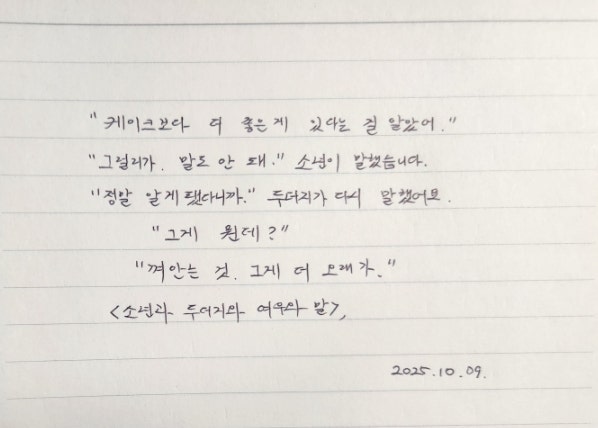 "케이크보다 더 좋은게 있다는 걸 알았어."
"그럴리가. 말도 안 돼." 소년이 말했습니다.
"정말 알게 됐다니까." 두더지가 다시 말했어요.
"그게 뭔데?"
"껴안는 것. 그게 더 오래가."
<소년과 두더지와 여우와 말>,
2025.10.09.